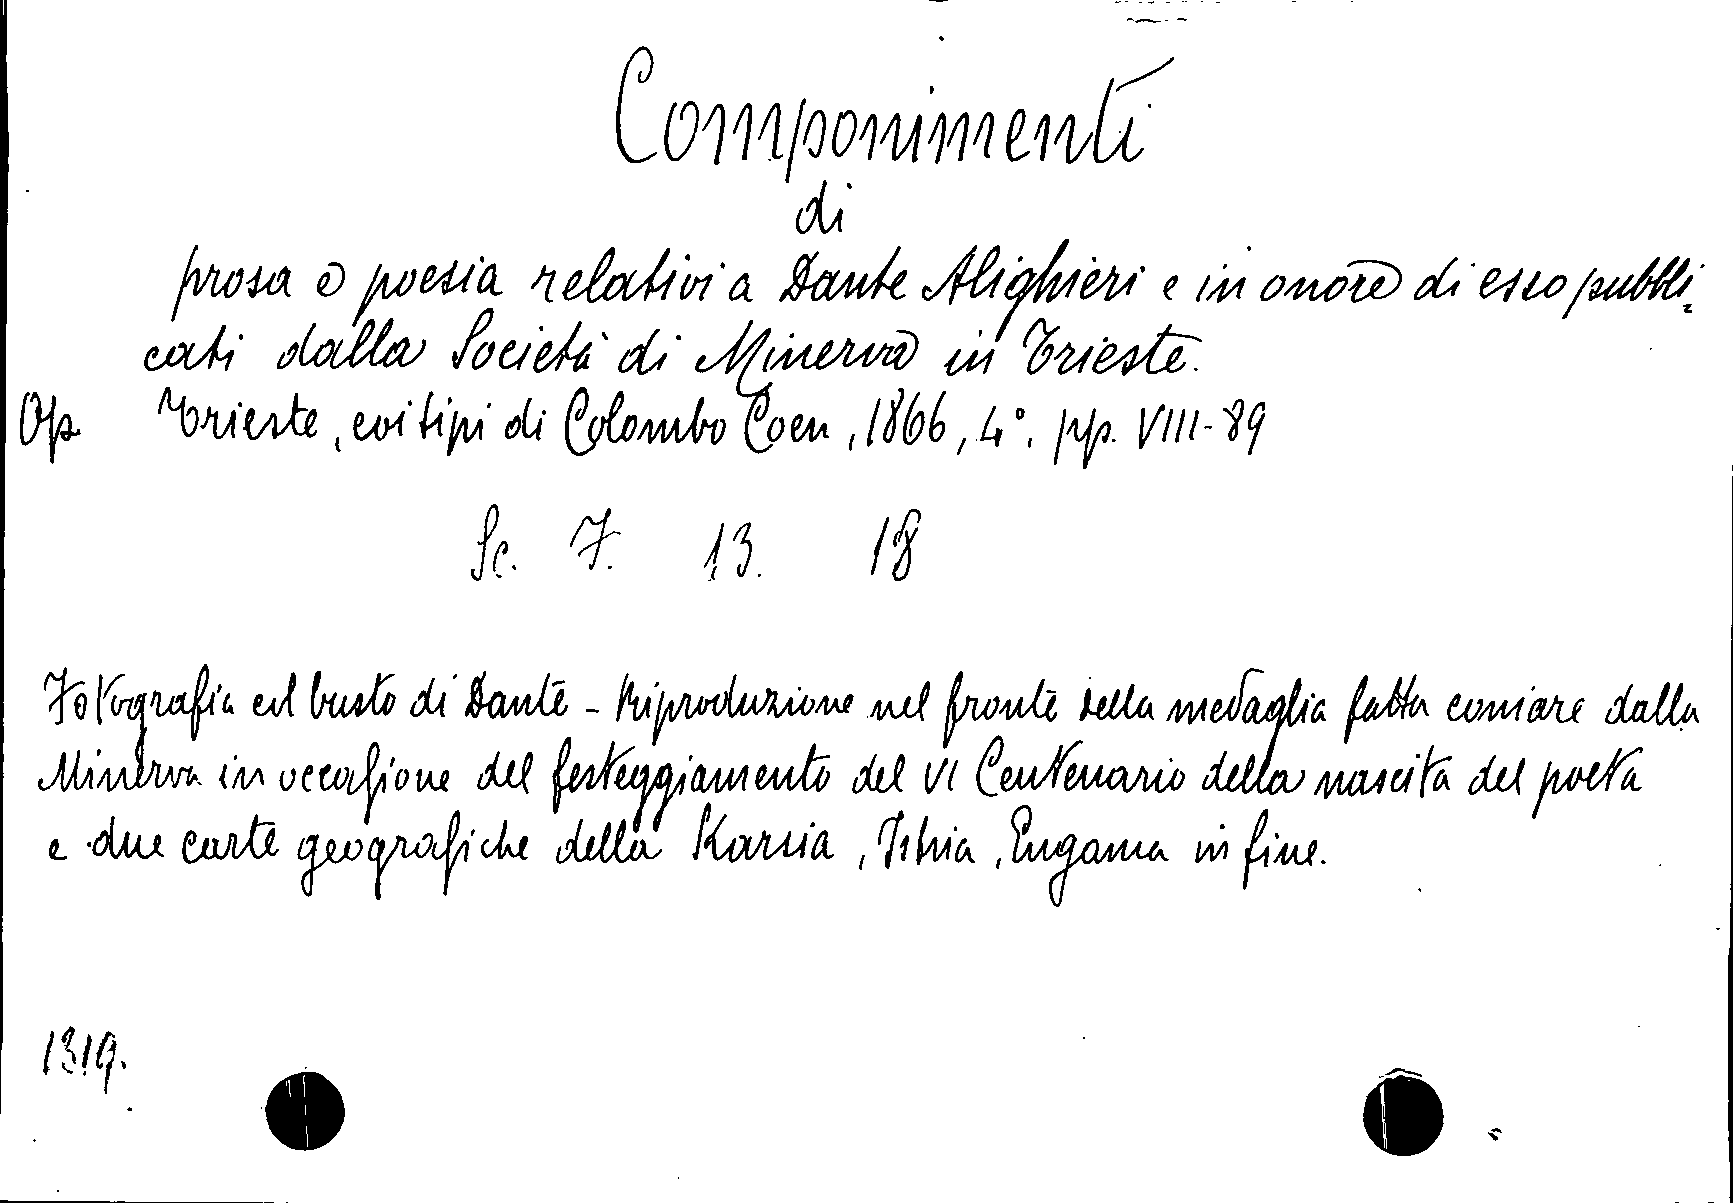 Componimenti
di
prosa e poesia relativi a Dante Alighieri e in onore di esso pubbli-
cati dalla Società di Minerva in Trieste.
Op. Trieste, coi tipi di Colombo Coen, 1866, 4°, pp. VIII-89
Sc. 7. 13. 18
Fotografia col busto di Dante - Riproduzione nel fronte della medaglia fatta coniare dalla
Minerva in occasione del festeggiamento del VI Centenario della nascita del poeta
e due carte geografiche della Karsia, Istria, in fine.
1319.